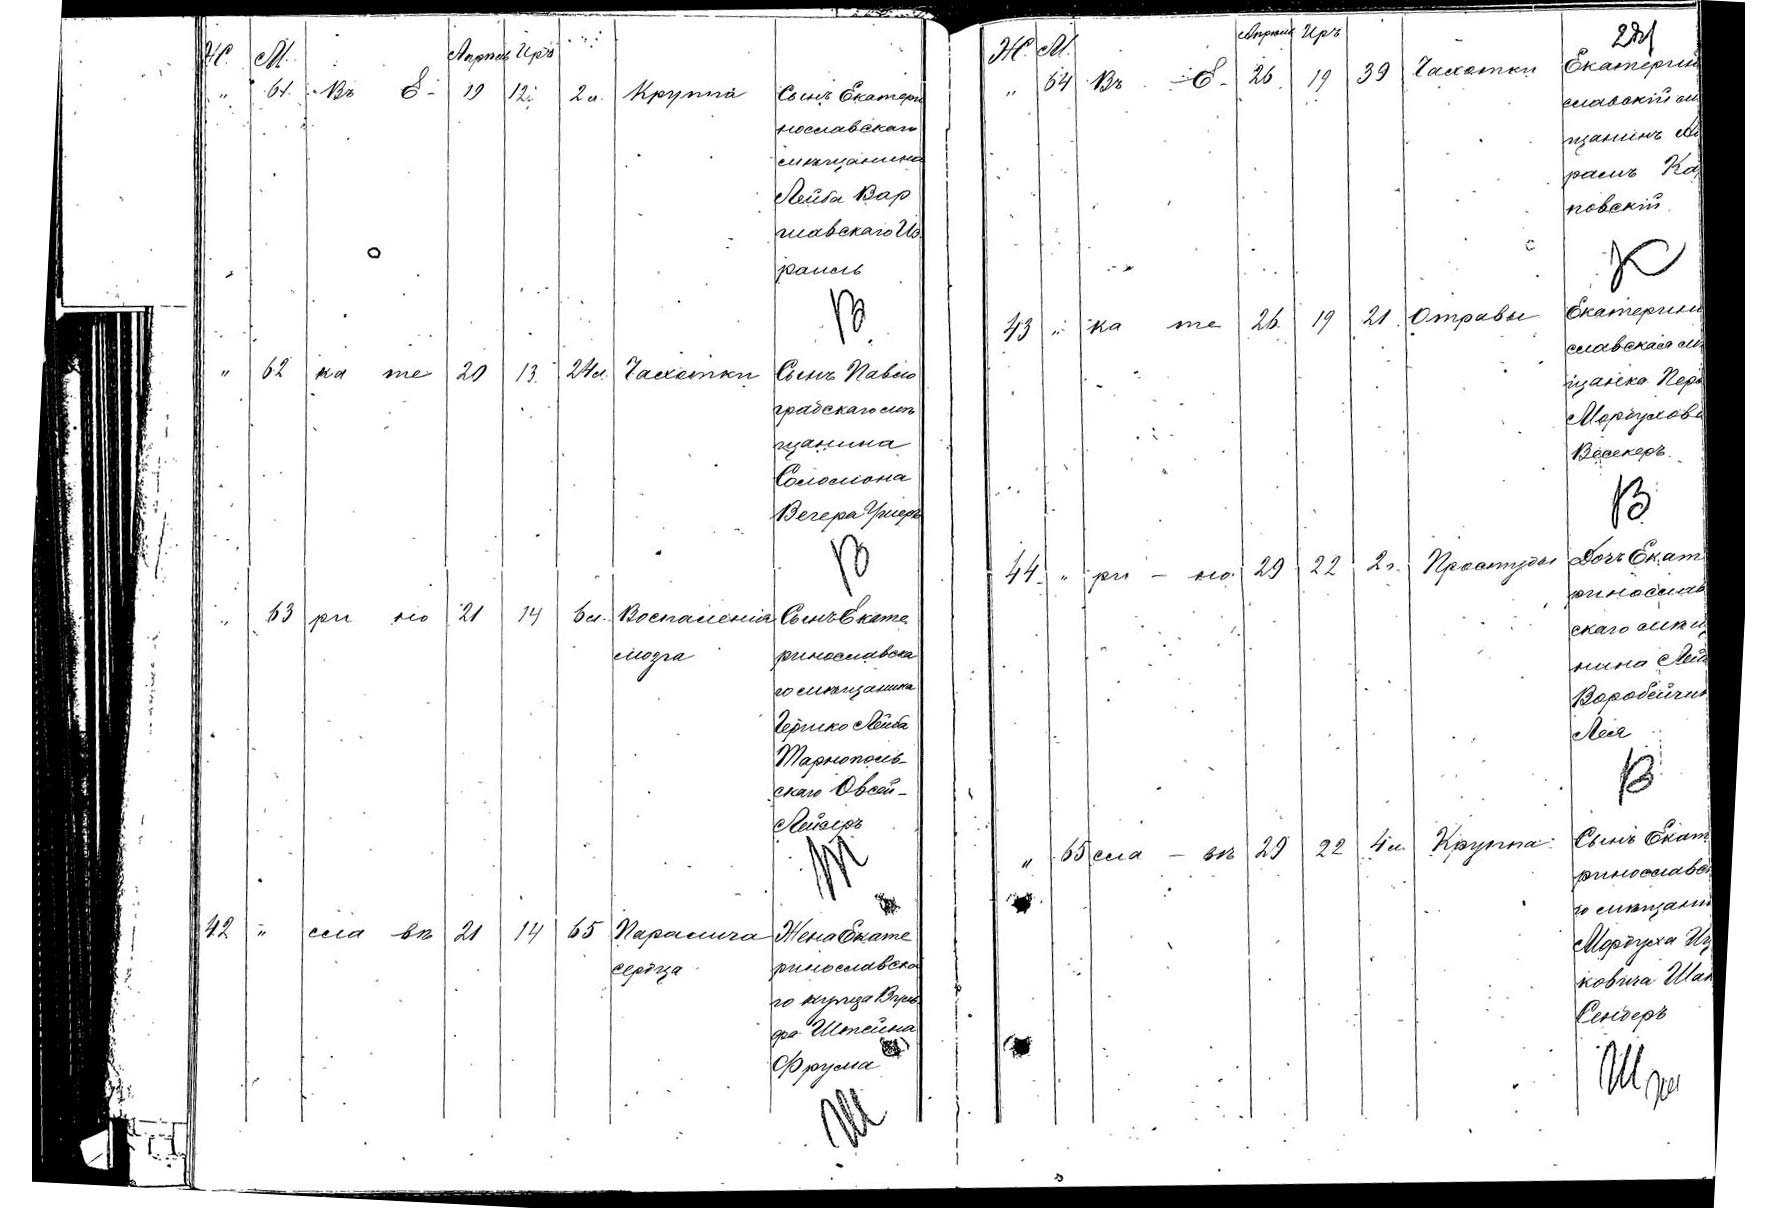 Ж. М. Апрель Иръ
" 61. Въ Е- 19 12. 2 м. Круппа Сынъ Екатери
нославскаго
мѣщанина
Лейба Вар
шавскаго Из
раиль
В
" 62 ка те 20 13. 24 м. Чахотки Сынъ Павло
градскаго мѣ
щанина
Соломона
Вегера
В
" 63 ри но 21 14 6 м. Воспаленія Сынъ Екате
мозга ринославска
го мѣщанина
Гершко Лейба
Тарнополь-
скаго Овсей-
Лейзеръ
Т
42 " сла вѣ 21 14 65 Паралича Жена Екате
сердца ринославска
го купца
Штейна
Фрума
Ш
Ж. М. Апреля Иръ
" 64 Въ - Е- 26 19 39 Чахотки Екатерино
славскій мѣ
щанинъ
рамъ Ка
новскій.
К
43 " ка те 26 19 21 Отравы Екатерино
славская мѣ
щанка Пера
Мордухова
Весекеръ.
В
44 " ри - но 29 22 2 г. Простуды Дочь Екате
ринослав
скаго мѣща
нина Лейба
Воробейчик
Лея
В
" 65 сла - вѣ 29 22 4 м. Круппа Сынъ Екате
ринославска
го мѣщанина
Мордуха Иц
ковича
Сендеръ
Ш